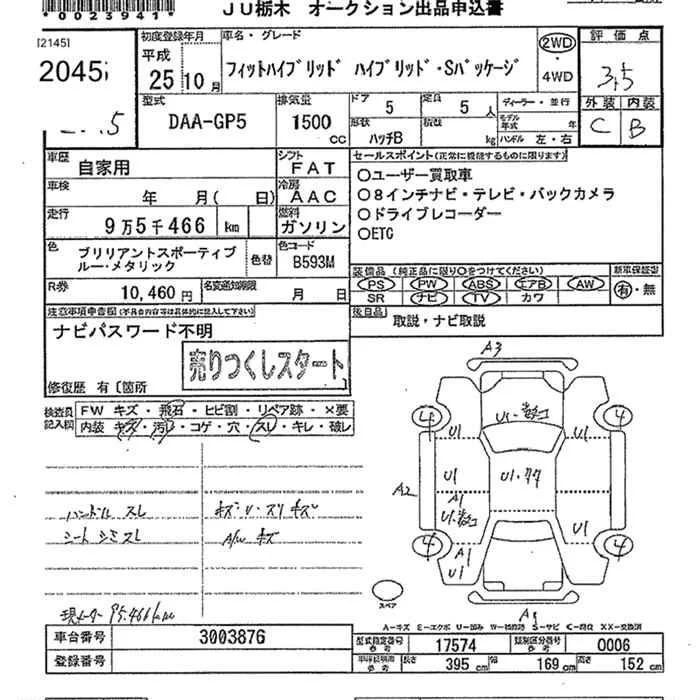 *0023941*
JU栃木 オークション出品申込書
[2145]
2045
初度登録年月
平成
25 10月
車名・グレード
フィットハイブリッド ハイブリッド・Sパッケージ
2WD
4WD
評価点
3.5
外装 内装
C B
型式
DAA-GP5
排気量
1500 cc
ドア 5
定員 5 人
形状 ハッチB
積載 kg
ディーラー・並行
モデル年式 年
ハンドル 左・右
車歴 自家用
シフト FAT
車検 年 月( 日)
冷房 AAC
走行 9万5千466 km
燃料 ガソリン
色 ブリリアントスポーティブルー・メタリック
色替
色コード B593M
R券 10,460円
名変通知期限 月 日
セールスポイント(正常に機能するものに限ります)
○ユーザー買取車
○8インチナビ・テレビ・バックカメラ
○ドライブレコーダー
○ETC
装備品 (純正品に限り○をつけてください)
PS PW ABS エアB AW
SR ナビ TV カワ
新車保証書
有・無
後日品 取説・ナビ取説
注意事項申告欄(不具合内容等は具体的に記入して下さい)
ナビパスワード不明
売りつくしスタート
修復歴 有〔箇所
検査員記入欄
FW キズ・飛石・ヒビ割・リペア跡・×要
内装 キズ・汚レ・コゲ・穴・スレ・キレ・破レ
ハンドル スレ
シート シミ スレ
キズ・U・スリキズ
A/W キズ
現メーター 95.466km
A3
4 4
U1 U1
U1
U1・77
A2
A1
U1
A1
U1
4 4
スペア
A-キズ E-エクボ U-凹み W-補修跡 S-サビ C-腐蝕 XX-交換済
車台番号 3003876
登録番号
型式指定番号 17574
類別区分番号 0006
長さ 395 cm
幅 169 cm
高さ 152 cm